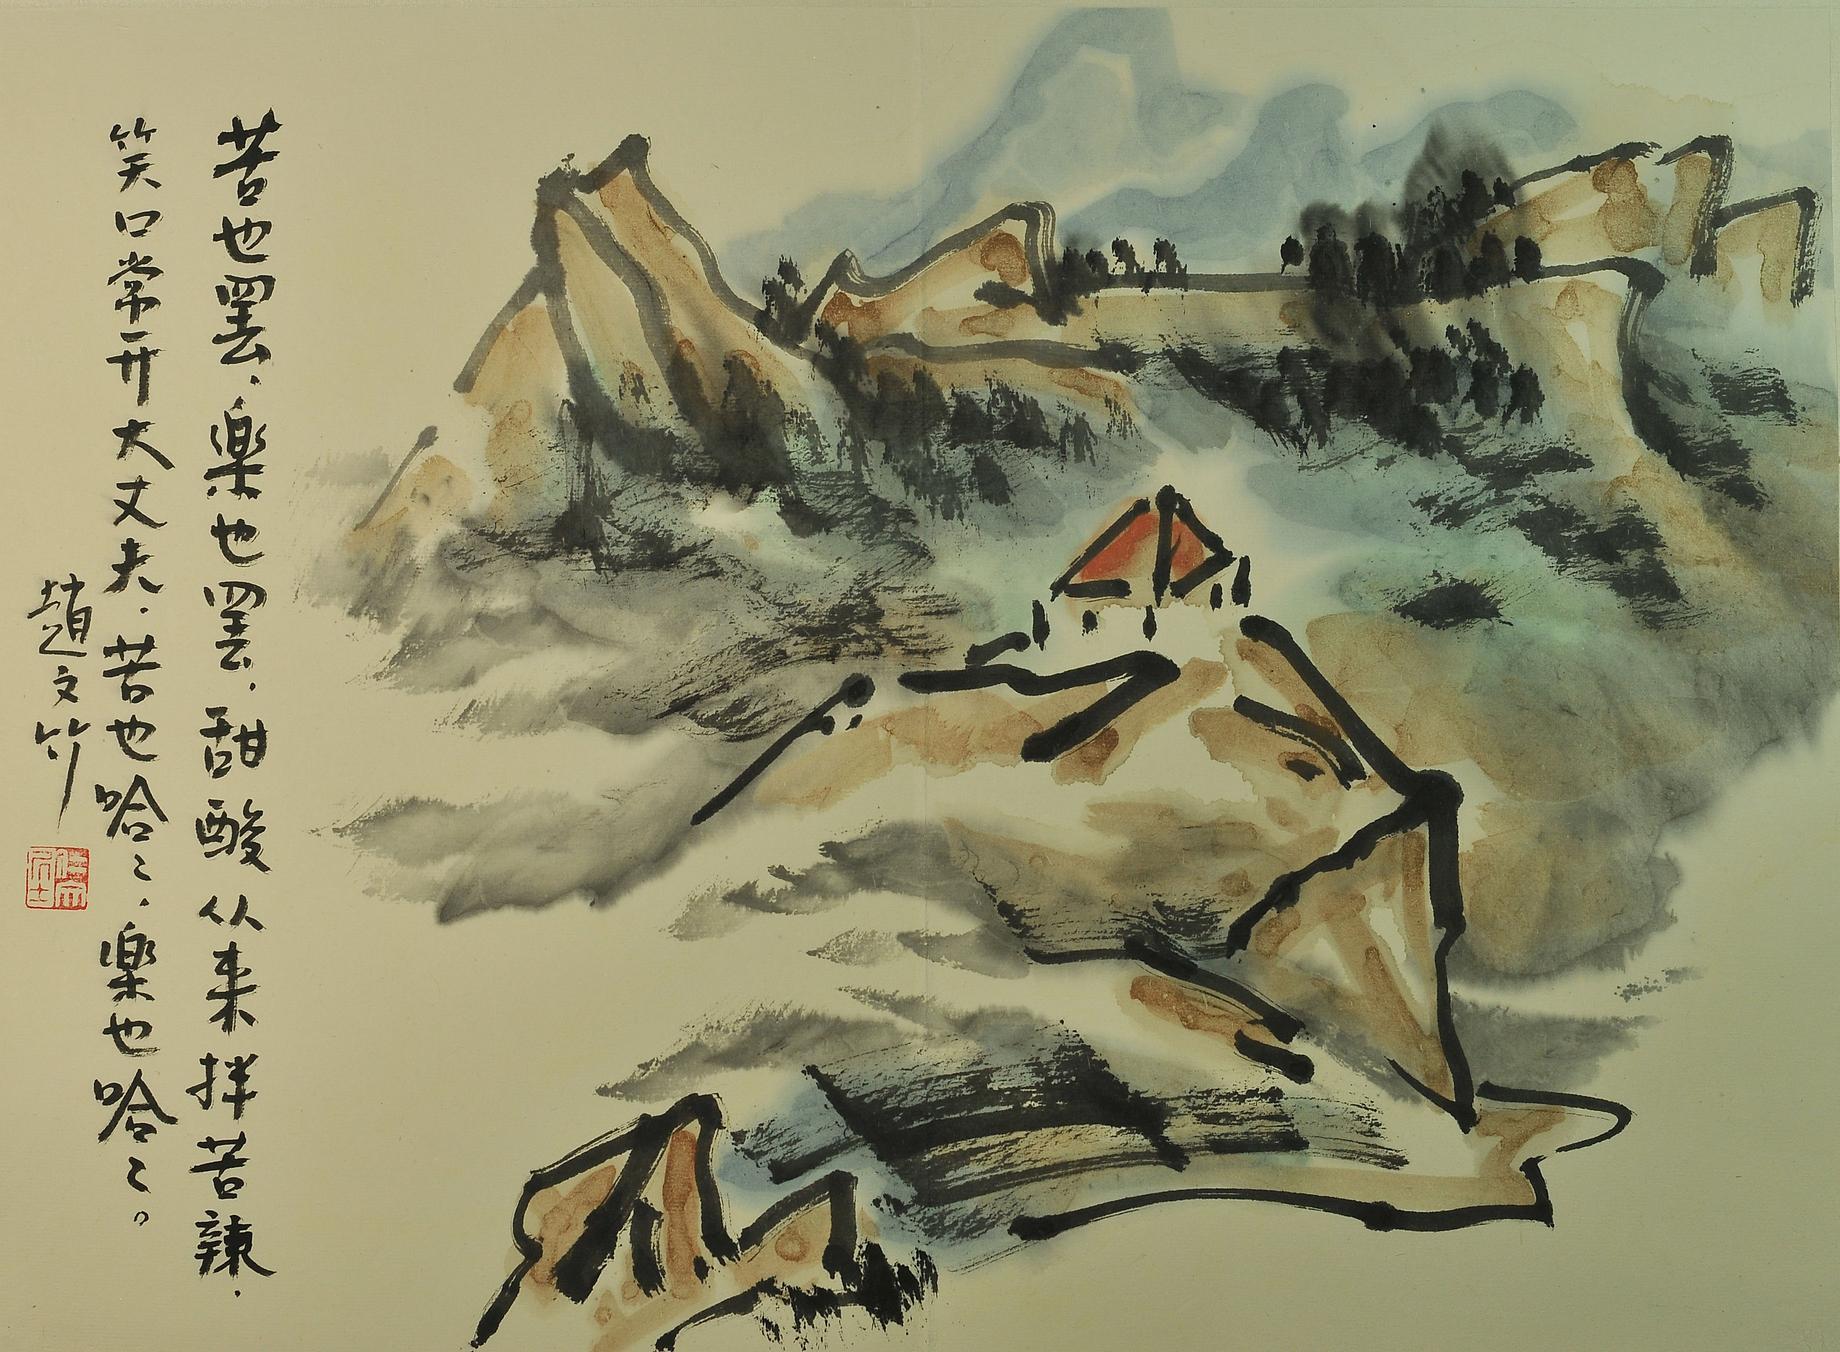 苦也罢，樂也罢，甜酸从来拌苦辣，
笑口常开大丈夫。苦也哈々，樂也哈々。
趙文竹